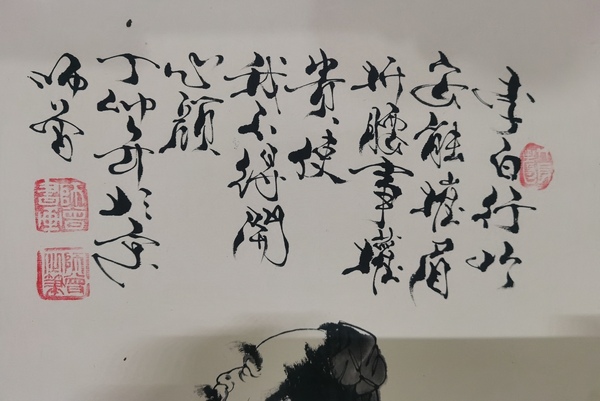 李白行吟
安能摧眉
折腰事權
貴使
我不得開
心顔
丁卯年於
師曾